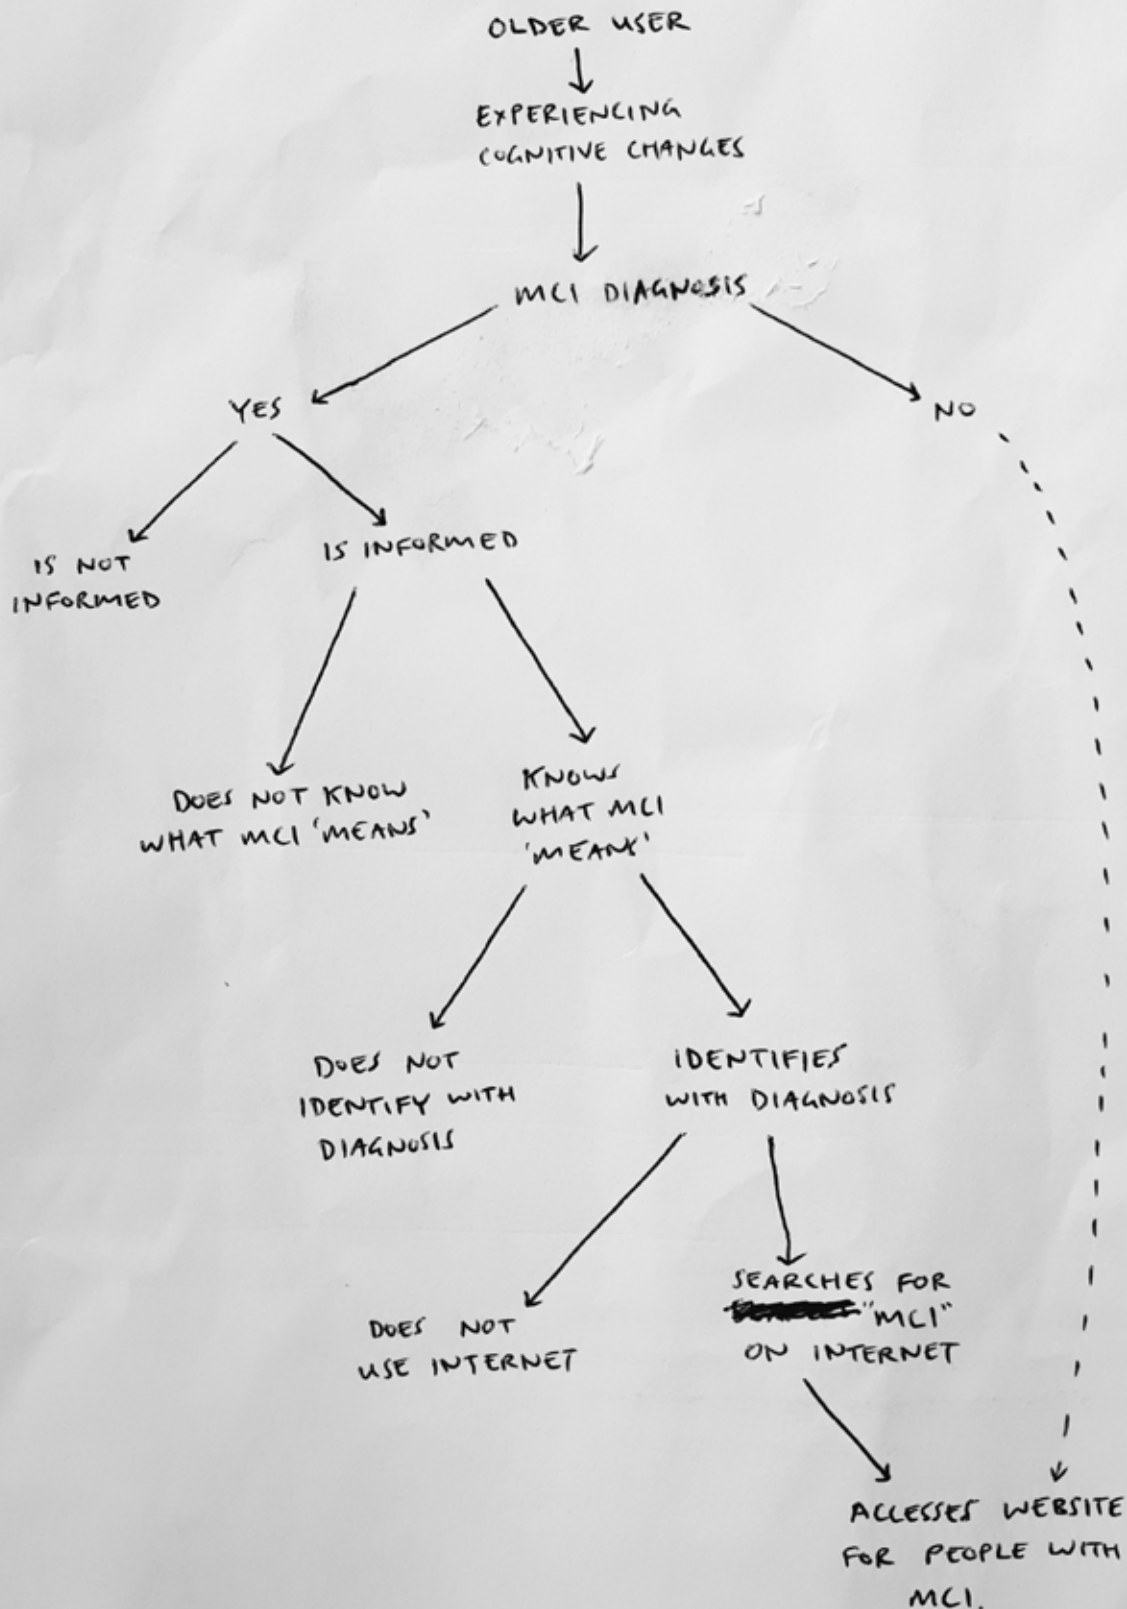 OLDER USER
EXPERIENCING
COGNITIVE CHANGES
MCI DIAGNOSIS
YES
NO
IS NOT
INFORMED
IS INFORMED
DOES NOT KNOW
WHAT MCI 'MEANS'
KNOWS
WHAT MCI
'MEANS'
DOES NOT
IDENTIFY WITH
DIAGNOSIS
IDENTIFIES
WITH DIAGNOSIS
DOES NOT
USE INTERNET
SEARCHES FOR
"MCI"
ON INTERNET
ACCESSES WEBSITE
FOR PEOPLE WITH
MCI.